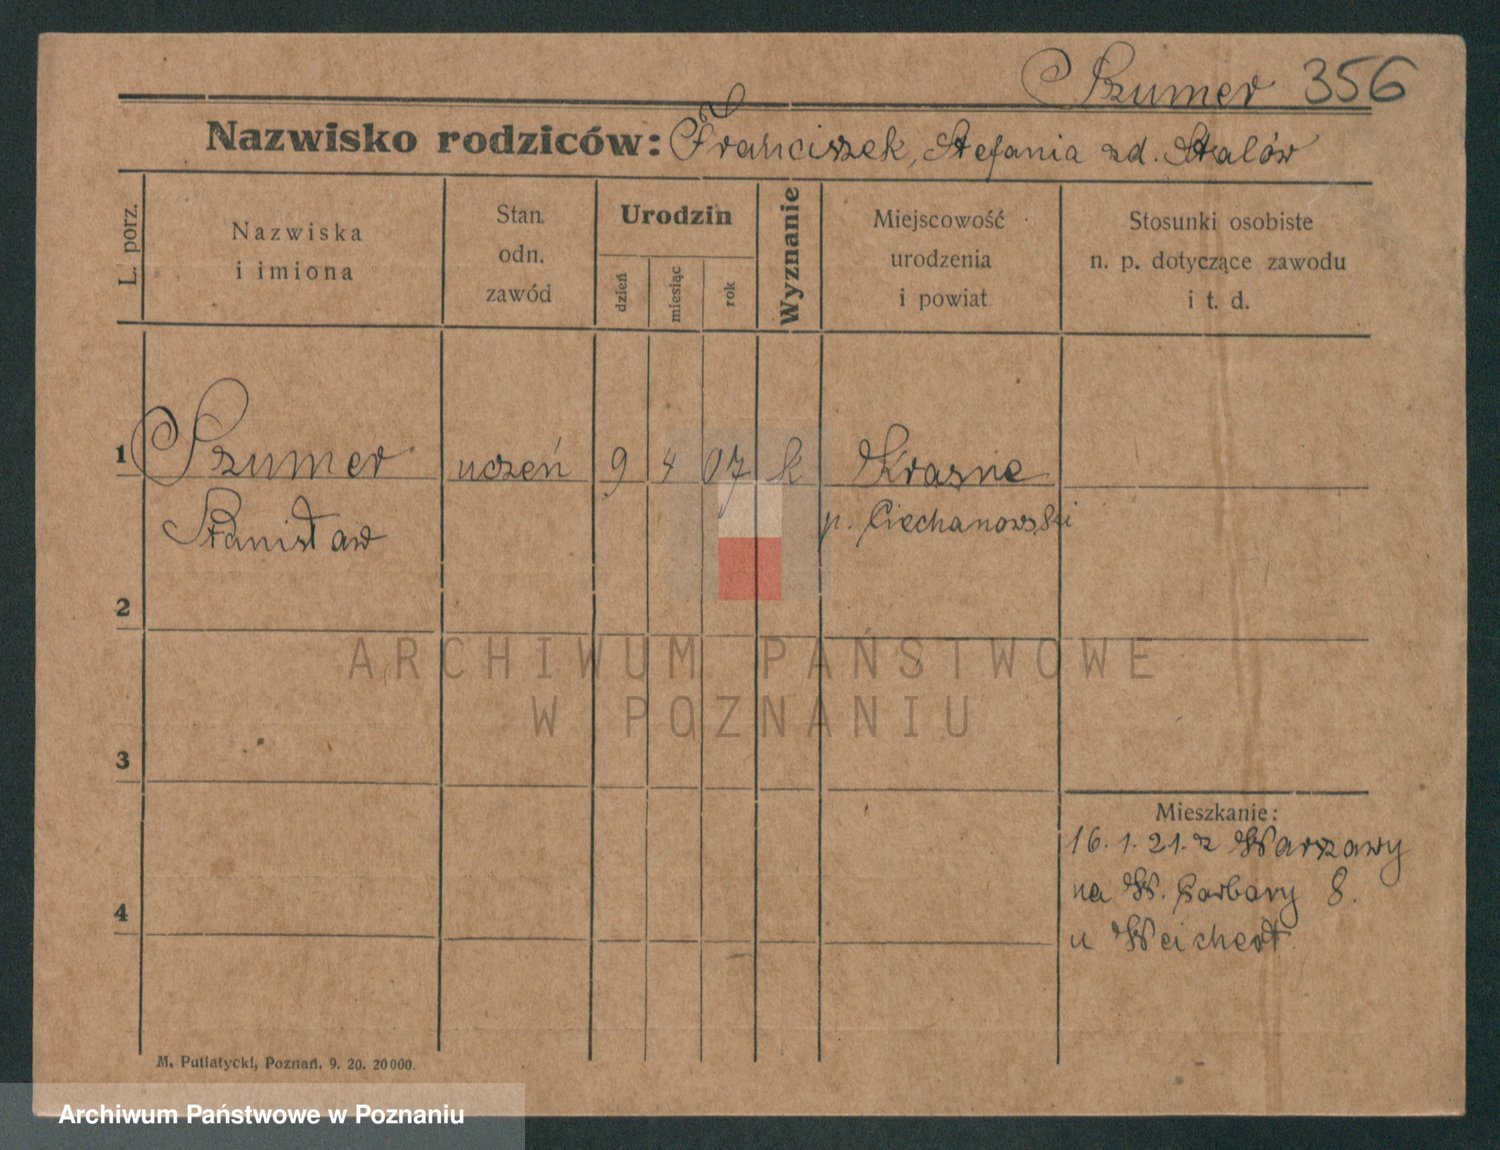 Szumer 356
Nazwisko rodziców: Franciszek, Stefania zd. Stalów
L. porz.
Nazwiska
i imiona
Stan
odn.
zawód
Urodzin
dzień
miesiąc
rok
Wyznanie
Miejscowość
urodzenia
i powiat
Stosunki osobiste
n. p. dotyczące zawodu
i t. d.
1 Szumer uczeń 9 4 07 k Krasne
Stanisław p. Ciechanowski
2
ARCHIWUM PAŃSTWOWE
W POZNANIU
3
Mieszkanie:
16. 1. 21. z Warszawy
na W. Garbary 8.
4
u Weichert
M. Putiatycki, Poznań. 9. 20. 20000.
Archiwum Państwowe w Poznaniu